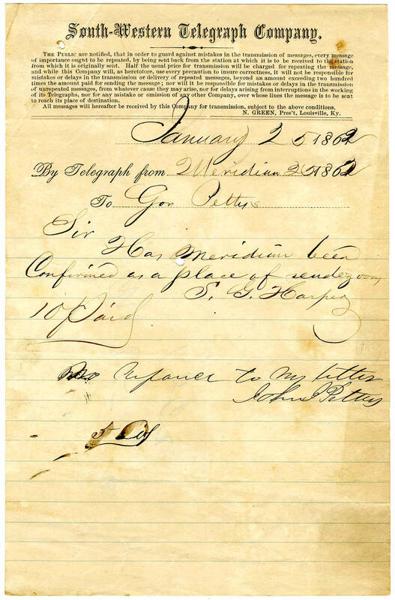 South-Western Telegraph Company.
THE PUBLIC are notified, that in order to guard against mistakes in the transmission of messages, every message
of importance ought to be repeated, by being sent back from the station at which it is to be received to the station
from which it is originally sent. Half the usual price for transmission will be charged for repeating the message,
and while this Company will, as heretofore, use every precaution to insure correctness, it will not be responsible for
mistakes or delays in the transmission or delivery of repeated messages, beyond an amount exceeding two hundred
times the amount paid for sending the message; nor will it be responsible for mistakes or delays in the transmission
of unrepeated messages, from whatever cause they may arise, nor for delays arising from interruptions in the working
of its Telegraphs, nor for any mistake or omission of any other Company, over whose lines the message is to be sent
to reach its place of destination.
All messages will hereafter be received by this Company for transmission, subject to the above conditions.
N. GREEN, Pres't, Louisville, Ky.
January 25 1862
By Telegraph from Meridian 25 1862
To Gov Pettus
Sir Has Meridian been
Confirmed as a place of rendezvous
S. G. Harper
10 Paid
No to my letter
John J Pettus